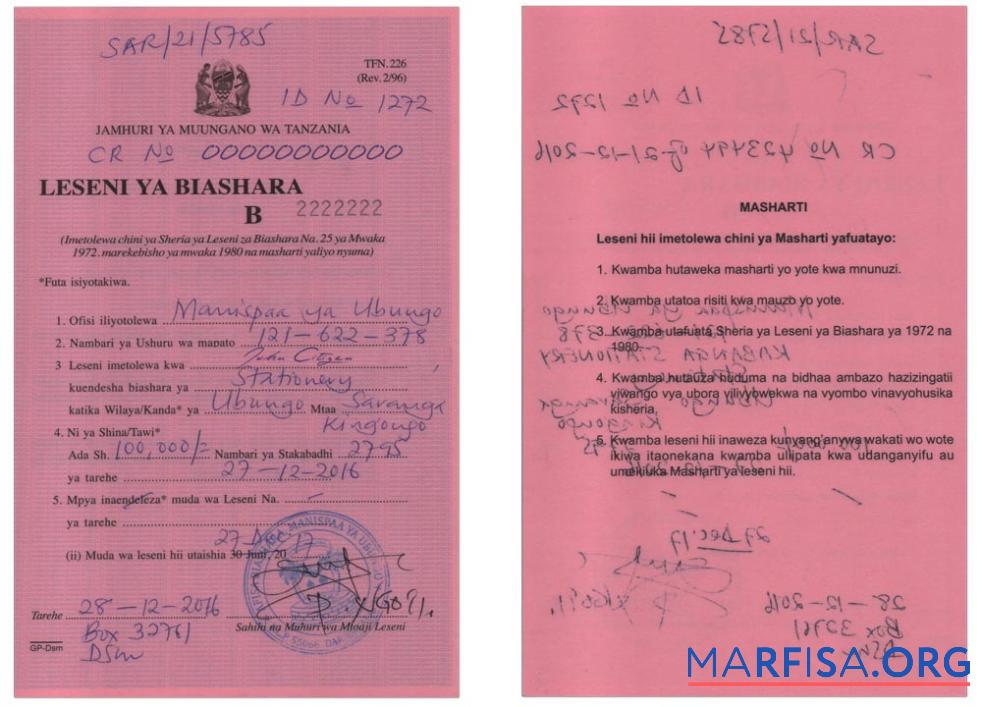 SAR/21/5785
TFN. 226
(Rev. 2/96)
ID No 1272
JAMHURI YA MUUNGANO WA TANZANIA
CR No 00000000000
LESENI YA BIASHARA
B 2222222
(Imetolewa chini ya Sheria ya Leseni za Biashara Na. 25 ya Mwaka
1972. marekebisho ya mwaka 1980 na masharti yaliyo nyuma)
*Futa isiyotakiwa.
1. Ofisi iliyotolewa Manispaa ya Ubungo
2. Nambari ya Ushuru wa mapato 121-622-378
3 Leseni imetolewa kwa John Citizen
kuendesha biashara ya Stationery
katika Wilaya/Kanda* ya Ubungo Mtaa Saranga
Kingongo
4. Ni ya Shina/Tawi*
Ada Sh. 100,000/= Nambari ya Stakabadhi 2795
ya tarehe 27-12-2016
5. Mpya inaendeleza* muda wa Leseni Na. —
ya tarehe
27 Dec 17
(ii) Muda wa leseni hii utaishia 30 Juni, 20
Tarehe 28-12-2016
Sahihi na Muhuri wa Mtoaji Leseni
Box 32761
Dsm
GP-Dsm
MANISPAA YA
SAR/21/5785
ID No 1272
CR No 423494 of 21-12-2016
MASHARTI
Leseni hii imetolewa chini ya Masharti yafuatayo:
1. Kwamba hutaweka masharti yo yote kwa mnunuzi.
2. Kwamba utatoa risiti kwa mauzo yo yote.
3. Kwamba utafuata Sheria ya Leseni ya Biashara ya 1972 na
1980.
KABANGA STATIONERY
4. Kwamba hutauza huduma na bidhaa ambazo hazizingatii
viwango vya ubora vilivyowekwa na vyombo vinavyohusika
kisheria.
Kingongo
5. Kwamba leseni hii inaweza kunyang'anywa wakati wo wote
ikiwa itaonekana kwamba ulilipata kwa udanganyifu au
umekiuka Masharti ya leseni hii.
27 Dec 17
28-12-2016
Box 32761
Dsm
MARFISA.ORG